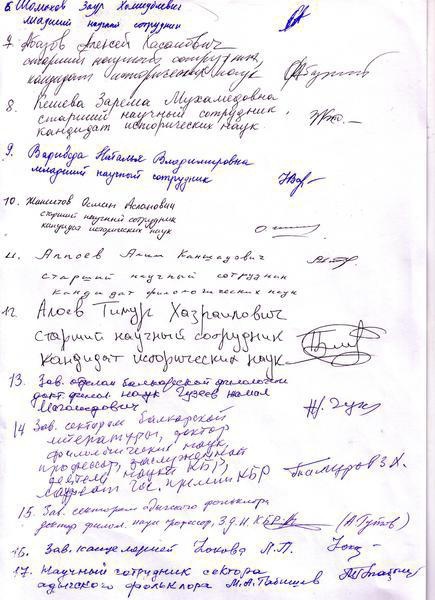 6. Шомахов Заур Хамидбиевич
младший научный сотрудник
7. Абазов Алексей Хасанович
старший научный сотрудник,
кандидат исторических наук
8. Кешева Зарема Мухамедовна
старший научный сотрудник,
кандидат исторических наук
9. Варивода Наталья Владимировна
младший научный сотрудник
10. Жанситов Осман Асланович
старший научный сотрудник
кандидат исторических наук
11. Аппоев Алим Каншауович
старший научный сотрудник
кандидат филологических наук
12. Алоев Тимур Хазраилович
старший научный сотрудник
кандидат исторических наук
13. Зав. отделом балкарской филологии
докт. филол. наук Гузеев
Магомедович
14 Зав. сектором балкарской
литературы, доктор
филологических наук,
профессор, заслуженный
деятель науки КБР,
лауреат Гос. премии КБР
15. Зав. сектором адыгского фольклора
доктор филол. наук профессор, З.Д.Н. КБР (А. Гутов)
16. Зав. канцелярией Л.П.
17. Научный сотрудник сектора
адыгского фольклора М.А. Табишев